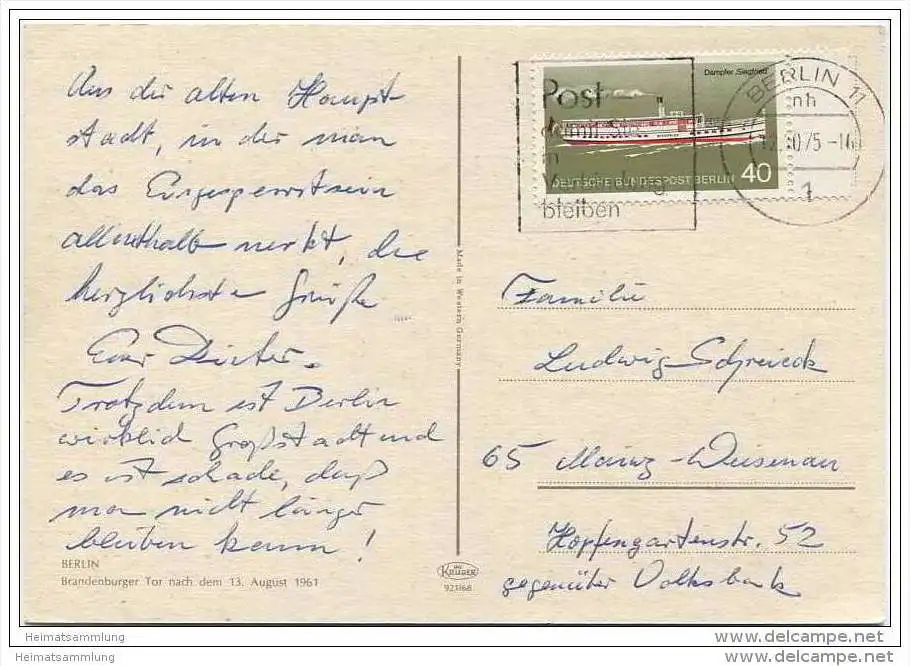 Aus der alten Haupt-
stadt, in der man
das Eingesperrtsein
allenthalb merkt, die
herzlichsten Grüße
Euer Dieter.
Trotzdem ist Berlin
wirklich Großstadt und
es ist schade, daß
man nicht länger
bleiben kann!
BERLIN
Brandenburger Tor nach dem 13. August 1961
Made in Western Germany
KRÜGER
921/68
Post
damit Sie
in
Verbindung
bleiben
Dampfer „Siegfried“
DEUTSCHE BUNDESPOST BERLIN 40
BERLIN 11
nh
10 75 -16
1
Familie
Ludwig Schreieck
65 Mainz-Weisenau
Hopfengartenstr. 52
gegenüber Volksbank
Heimatsammlung
Heimatsammlung
www.delcampe.net
www.delcampe.net